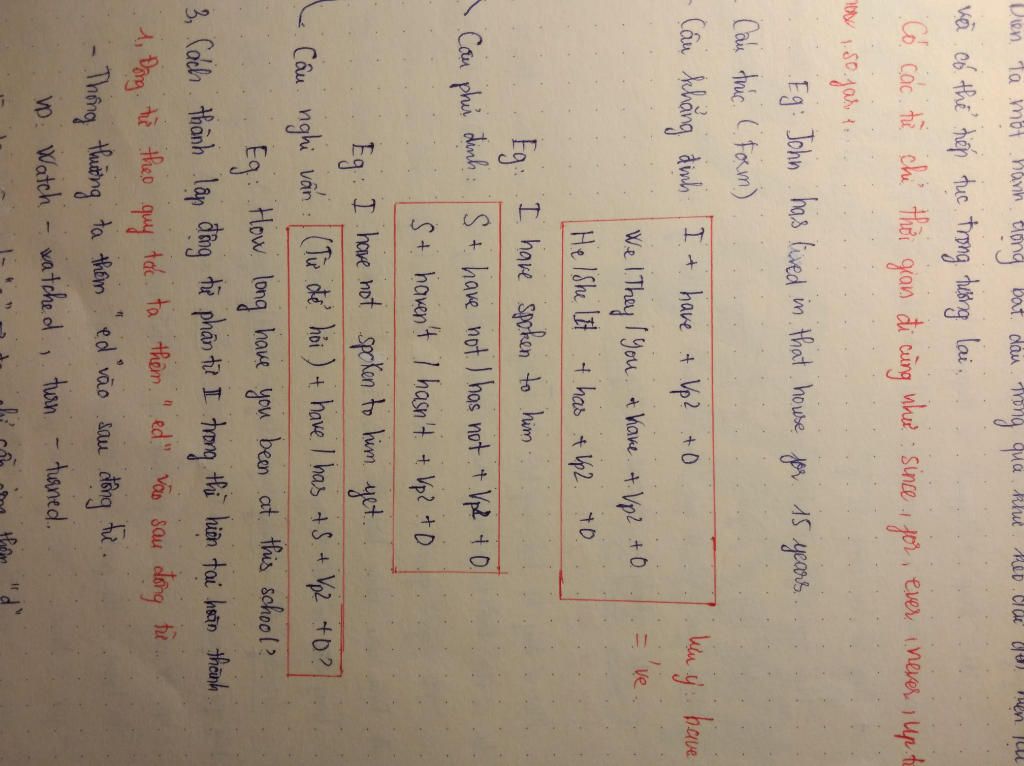 Diễn tả một hành động bắt đầu trong quá khứ kéo dài đến hiện tại
và có thể tiếp tục trong tương lai.
Có các từ chỉ thời gian đi cùng như: since, for, ever, never, up t
now, so far,..
Eg: John has lived in that house for 15 years.
Cấu trúc (Form)
- Câu khẳng định
I + have + Vp2 + O
We / They / You + have + Vp2 + O
He / She / It + has + Vp2 + O
Lưu ý: have
= 've
Eg: I have spoken to him.
Câu phủ định:
S + have not / has not + Vp2 + O
S + haven't / hasn't + Vp2 + O
Eg: I have not spoken to him yet.
- Câu nghi vấn:
(Từ để hỏi) + have / has + S + Vp2 + O?
Eg: How long have you been at this school?
3, Cách thành lập động từ phân từ II trong thì hiện tại hoàn thành
1, Động từ theo quy tắc ta thêm "ed" vào sau động từ.
- Thông thường ta thêm "ed" vào sau động từ.
VD: Watch - watched, turn - turned.
thêm "d"